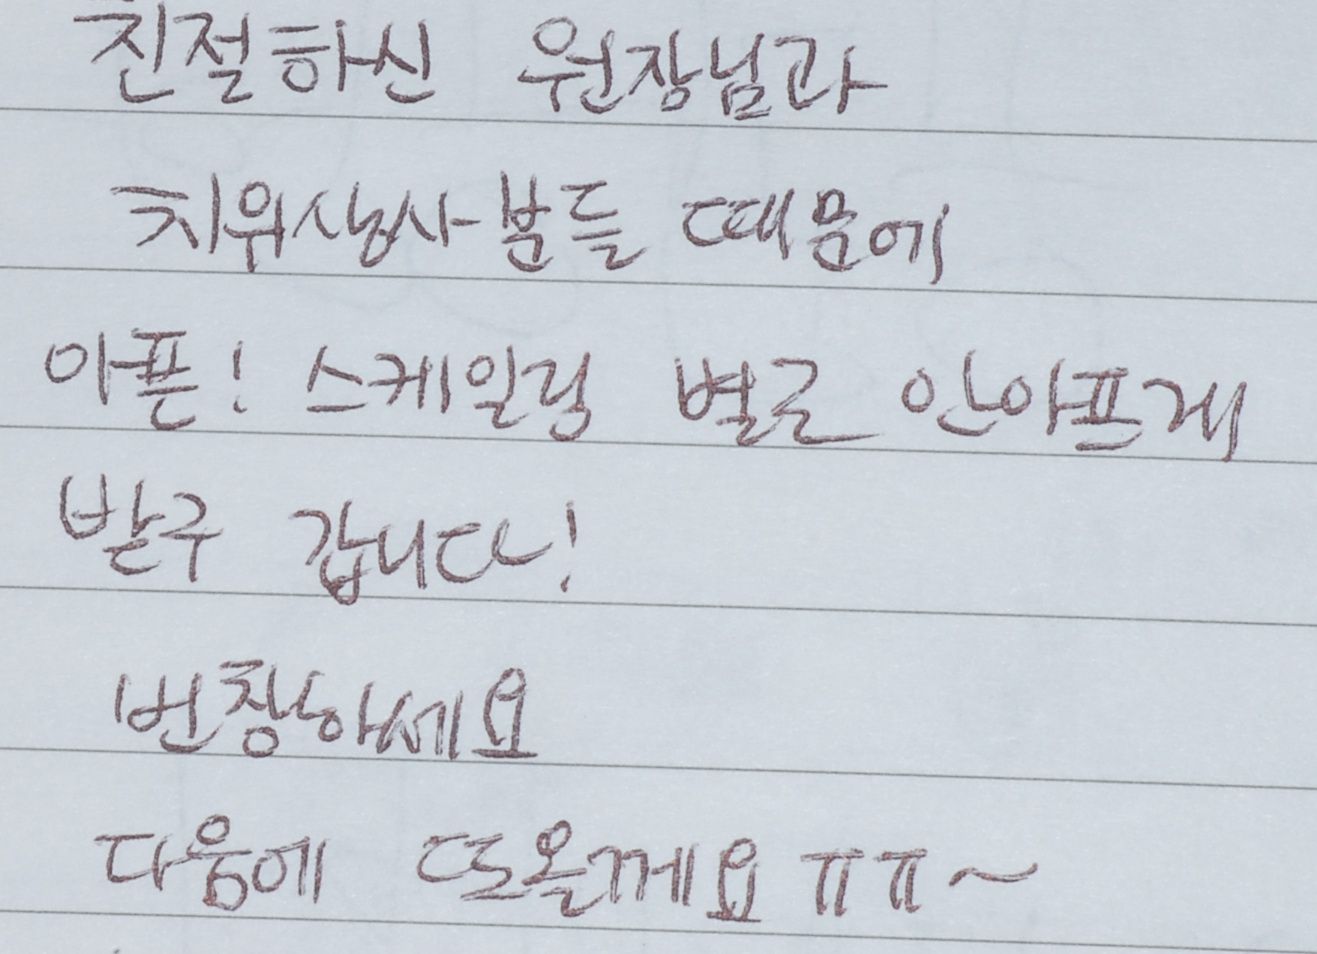 친절하신 원장님과
치위생사분들 때문에
아픈! 스케일링 별로 안아프게
받구 갑니다!
번창하세요
다음에 또올게요 ㅠㅠ~